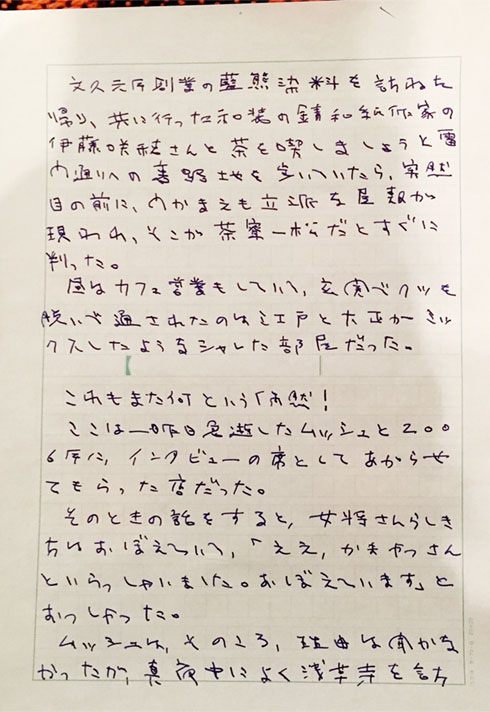 文久元年創業の藍熊染料を訪ねた
帰り、共に行った和装の錆和紙作家の
伊藤咲穂さんと茶を喫しましょうと雷
門通りへの裏路地を歩いていたら、突然
目の前に、門がまえも立派な屋敷が
現われ、そこが茶寮一松だとすぐに
判った。
昼はカフェ営業もしていて、玄関でクツを
脱いで通されたのは江戸と大正がミッ
クスしたようなシャレた部屋だった。
これもまた何という偶然!
ここは一昨日急逝したムッシュと200
6年に、インタビューの席としてあがらせ
てもらった店だった。
そのときの話をすると、女将さんらしき
方はおぼえていて、「ええ、かまやつさん
といらっしゃいました。おぼえています」と
おっしゃった。
ムッシュは、そのころ、理由は聞かな
かったが、真夜中によく浅草寺を訪